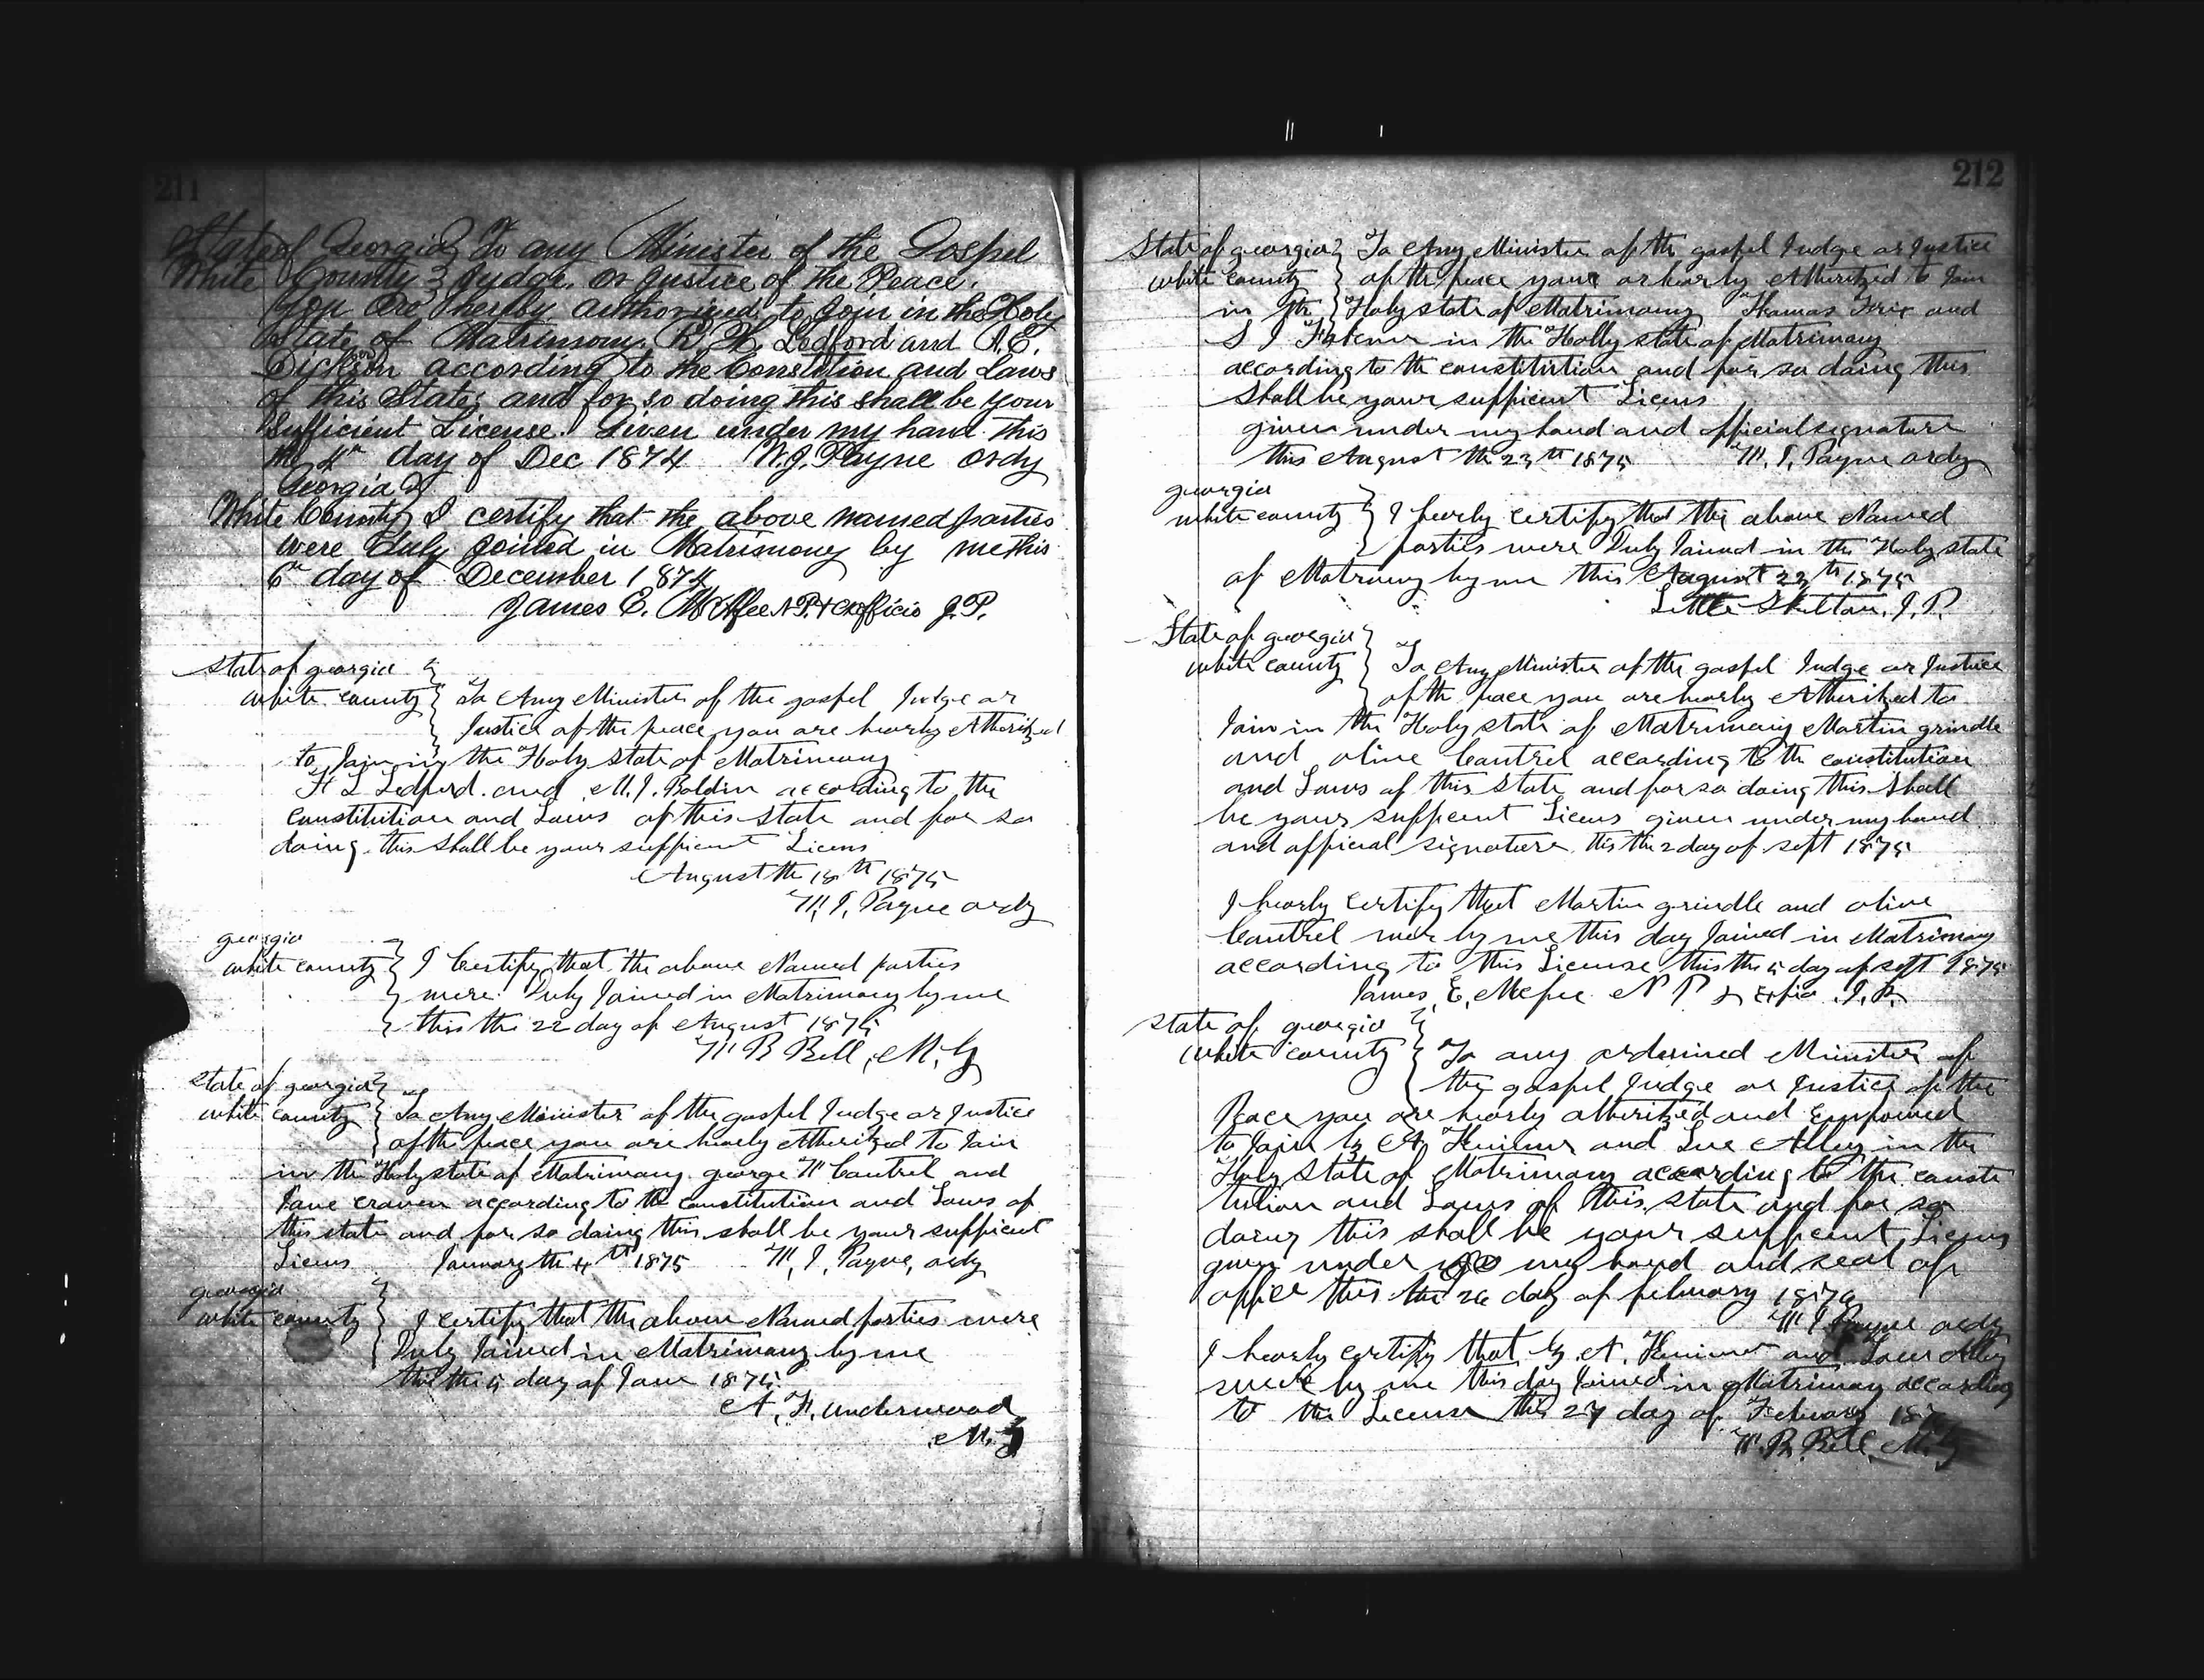 211
State of Georgia } To any Minister of the Gospel
White County } Judge, or Justice of the Peace.
You are hereby authorized to Join in the Holy
State of Matrimony R. H. Ledford and A. E.
Dickson according to the Constition and Laws
of this State; and for so doing this shall be your
Sufficient License. Given under my hand this
the 4th day of Dec 1874 W. J. Payne Ordy
Georgia }
White County } I certify that the above named parties
were duly joined in Matrimony by me this
6th day of December 1874
James E. McAfee N.P. & Exofficio J.P.
State of georgia }
white county } To Any Minister of the gospel Judge or
Justice of the peace you are hearby Atherized
to Join in the Holy State of Matrimony
H L Ledford and M. J. Boldin according to the
constitution and Laws of this State and for so
doing this Shall be your sufficient Licens
August the 18th 1875
W. J. Payne ordy
georgia
white county } I Certify that the above Named parties
were Duly Joined in Matrimony by me
this the 22 day of August 1875
W B Bell, M. G
State of georgia }
white county } To Any Minister of the gospel Judge or Justice
of the peace you are hearly Atherized to Join
in the Holy state of Matrimony george W Cantrel and
Jane craven according to the constitution and Laws of
this state and for so doing this shall be your suffient
Licens January the 4th 1875 W, J, Payne, ordy
georgia
white county } I certify that the above Named parties were
Duly Joined in Matrimony by me
this the 5 day of Jane 1875
A. H. underwood
M. G
212
State of georgia } To Any Minister of the gospel Judge or Justice
white county } of the peace your or hearby Atherized to Join
in the } Holy state of Matrimony Thomas Trix and
S J in the Holly state of Matrimony
according to the constitution and for so doing this
Shall be your sufficient Licens
given under my hand and official signature
this August the 23th 1875 W. J. Payne ordy
georgia
white county } I hearly certify that the above Named
parties were Duly Joined in the Holy state
of Matrimony by me this August 23th 1875
Little Skelton, J. P.
State of georgia }
white county } To Any Minister of the gospel Judge or Justice
of the peace you are hearly Atherized to
Join in the Holy state of Matrimony Martin grindle
and olive Cantrel according to the constitution
and Laws of this State and for so doing this Shall
be your suffient Licens given under my hand
and official signature this the 2 day of sept 1875
I hearly certify that Martin grindle and olive
Cantrel wer by me this day Joined in Matrimony
according to this License this the 5 day of sept 1875
James, E, Mcfee N P & J. P.
State of georgia }
white county } To any ordained Minister of
the gospel Judge or Justice of the
Peace you are hearly atherized and Empowed
to Join G A and Lue Alley in the
Holy State of Matrimony according to the consti
tution and Laws of this state and for so
doing this shall be your suffient Licens
given under my hand and seal of
office this the 26 day of febuary 1876
W J Payne ordy
I hearly certify that G. A. and Alley
by me this day Joined in Matrimony according
to the License this 27 day of Febuary
W. B. Bell, M. G